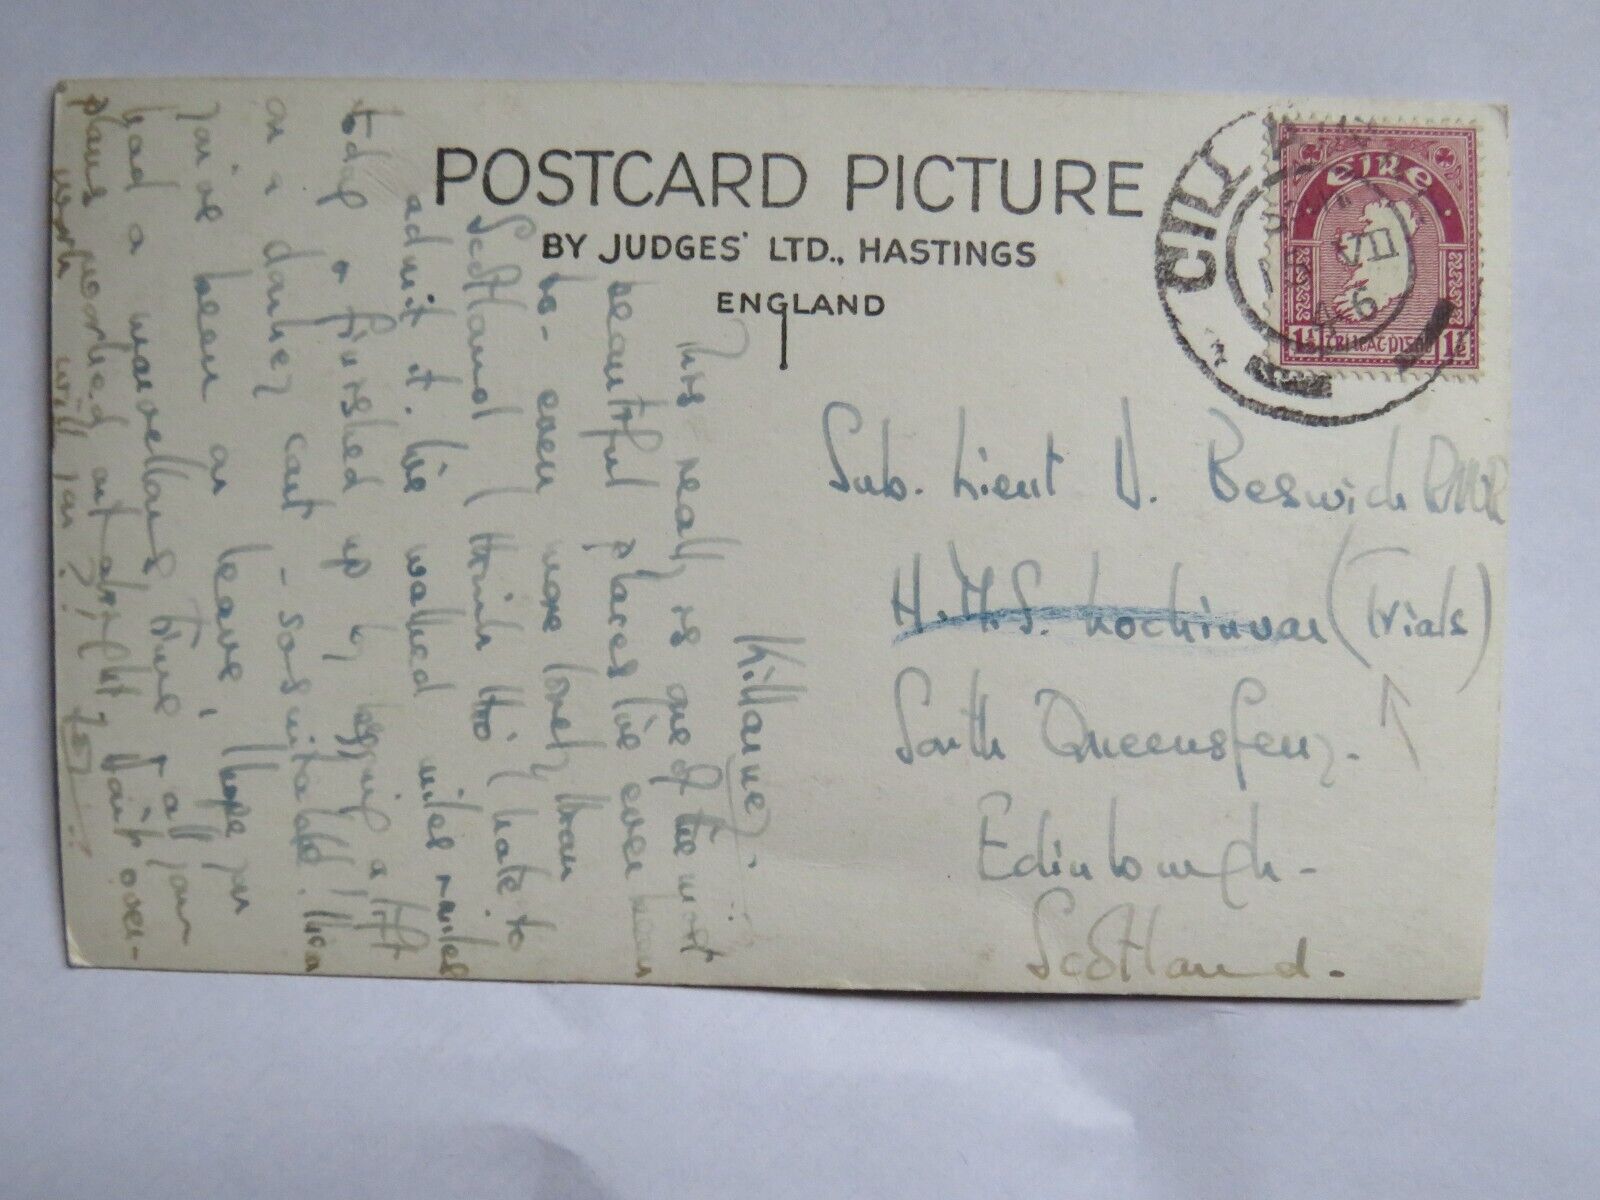 POSTCARD PICTURE
BY JUDGES' LTD., HASTINGS
ENGLAND
CILL
VII
46
EIRE
1½ 1½
Sub. Lieut V. Beswick RNVR
H.M.S. Lochinvar (Trials)
South Queensferry.
Edinburgh -
Scotland.
Killarney.
This really is one of the most
beautiful places I've ever been
to - even more lovely than
Scotland I think tho' I hate to
admit it. We walked miles & miles
today & finished up by begging a lift
on a donkey cart - so suitable! I hear
you've been on leave, I hope you
had a marvellous time & all your
plans worked out alright, don't over-
work will you?